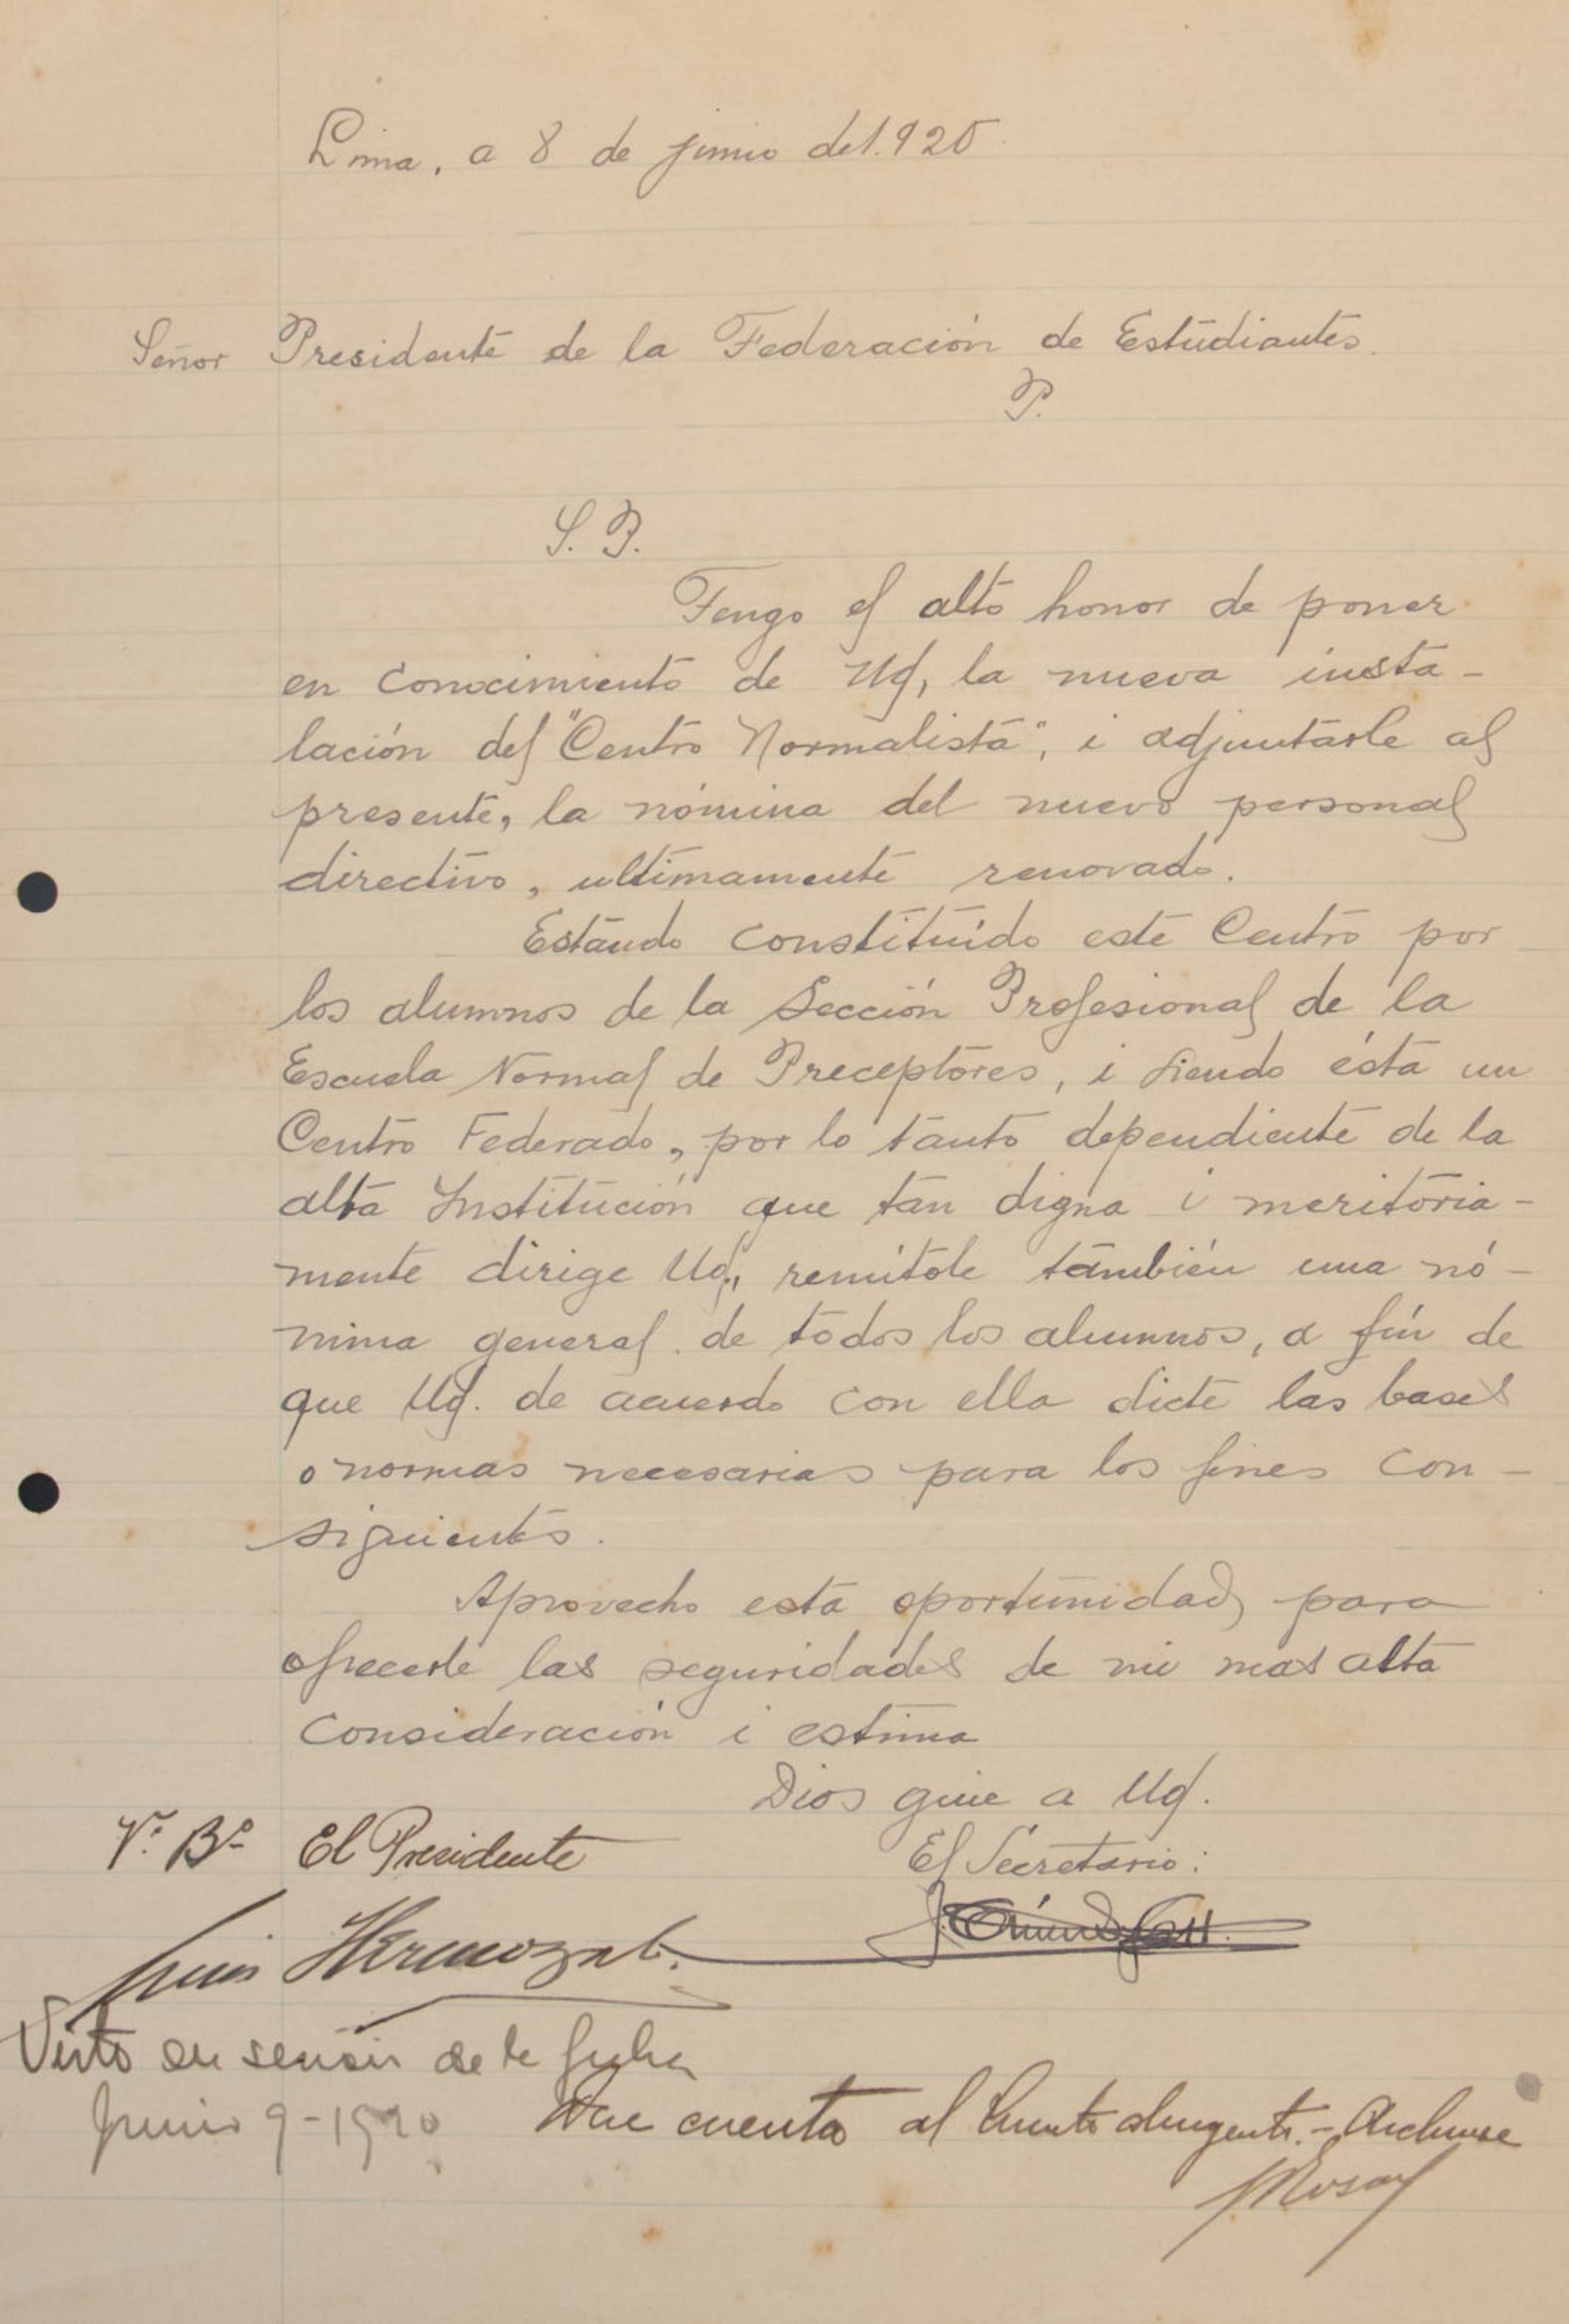 Lima, a 8 de junio de 1.920
Señor Presidente de la Federación de Estudiantes.
P.
S. P.
Tengo el alto honor de poner
en conocimiento de Ud, la nueva insta-
lación del "Centro Normalista", i adjuntarle al
presente, la nómina del nuevo personal
directivo, ultimamente renovado.
Estando constituído este Centro por
los alumnos de la Sección Profesional de la
Escuela Normal de Preceptores, i siendo ésta un
Centro Federado, por lo tanto dependiente de la
alta Institución que tan digna i meritoria-
mente dirige Ud., remítole también una nó-
nima general de todos los alumnos, a fín de
que Ud. de acuerdo con ella dicte las bases
o normas necesarias para los fines con-
siguientes.
Aprovecho esta oportunidad, para
ofrecerle las seguridades de mi mas alta
consideración i estima
Dios guie a Ud.
Vº. Bº El Presidente
El Secretario:
Luis Hermoza
Visto en sesión de la fecha
Junio 9-1920
cuenta al